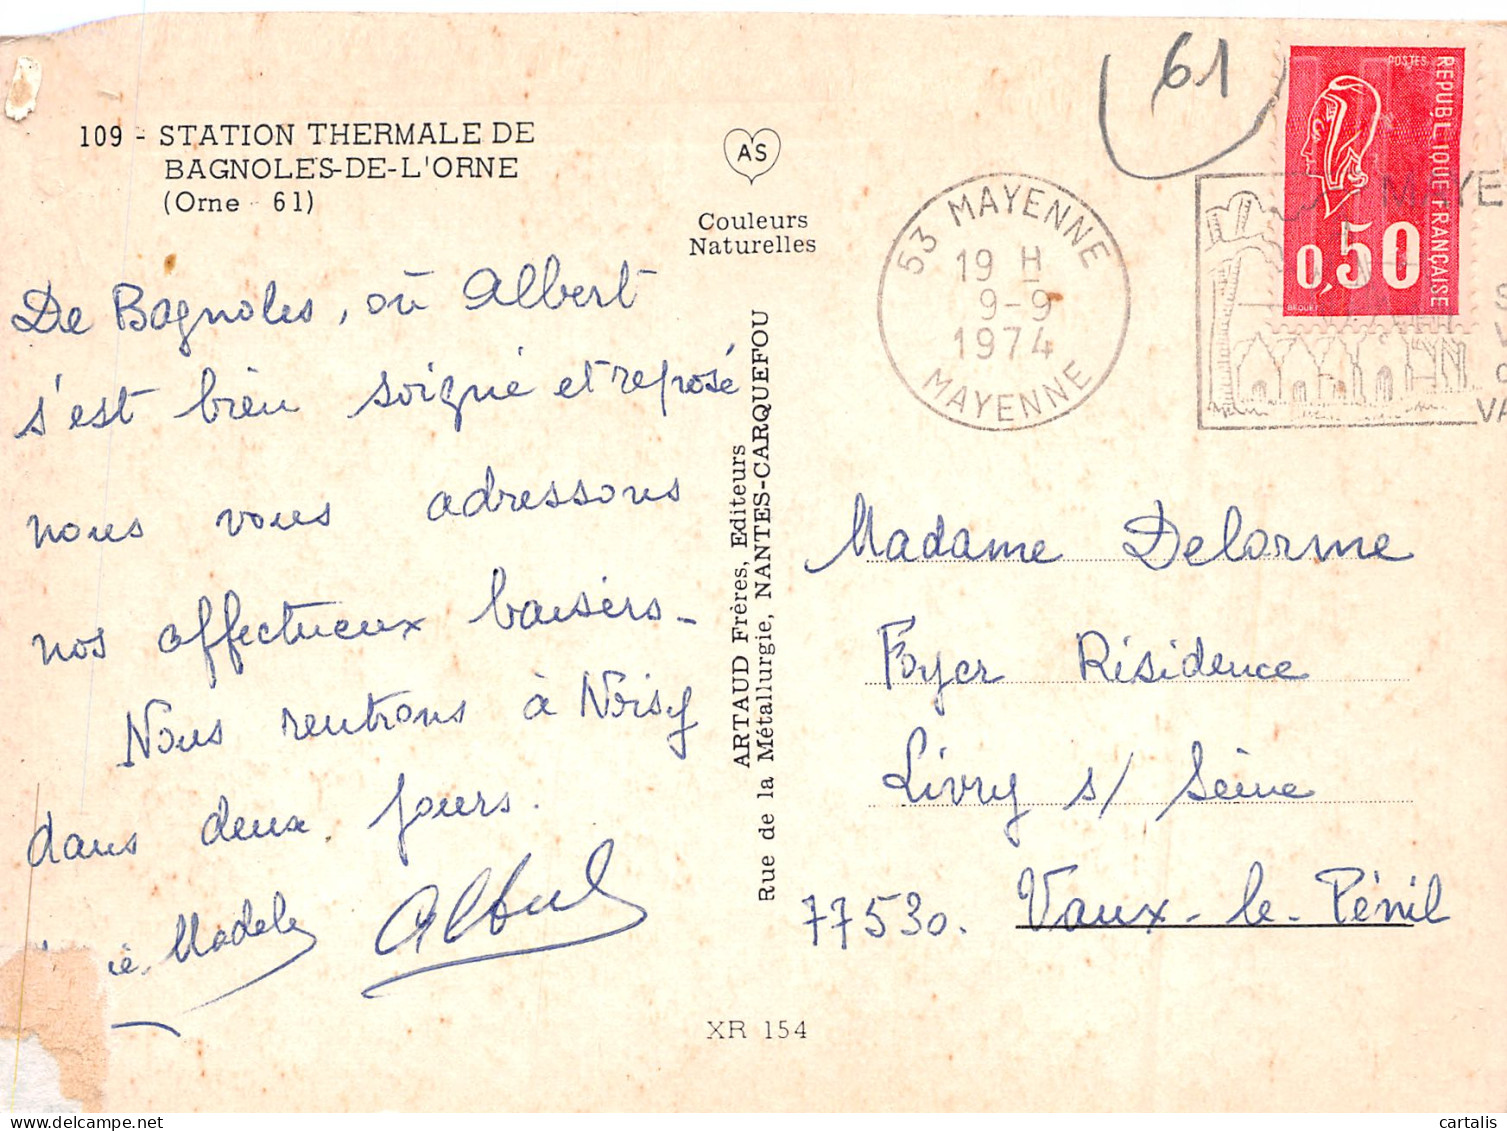 61
109 - STATION THERMALE DE
BAGNOLES-DE-L'ORNE
(Orne - 61)
AS
Couleurs
Naturelles
53 MAYENNE
19 H
9-9
1974
MAYENNE
MAYE
VA
POSTES
REPUBLIQUE FRANÇAISE
0,50
BEQUET
De Bagnoles, où Albert
s'est bien soigné et reposé
nous vous adressons
nos affectueux baisers -
Nous rentrons à Noisy
dans deux jours.
Albert
ARTAUD Frères, Editeurs
Rue de la Métallurgie, NANTES-CARQUEFOU
Madame Delorme
Foyer Résidence
Livry s/ Seine
77530. Vaux-le-Pénil
XR 154
cartalis